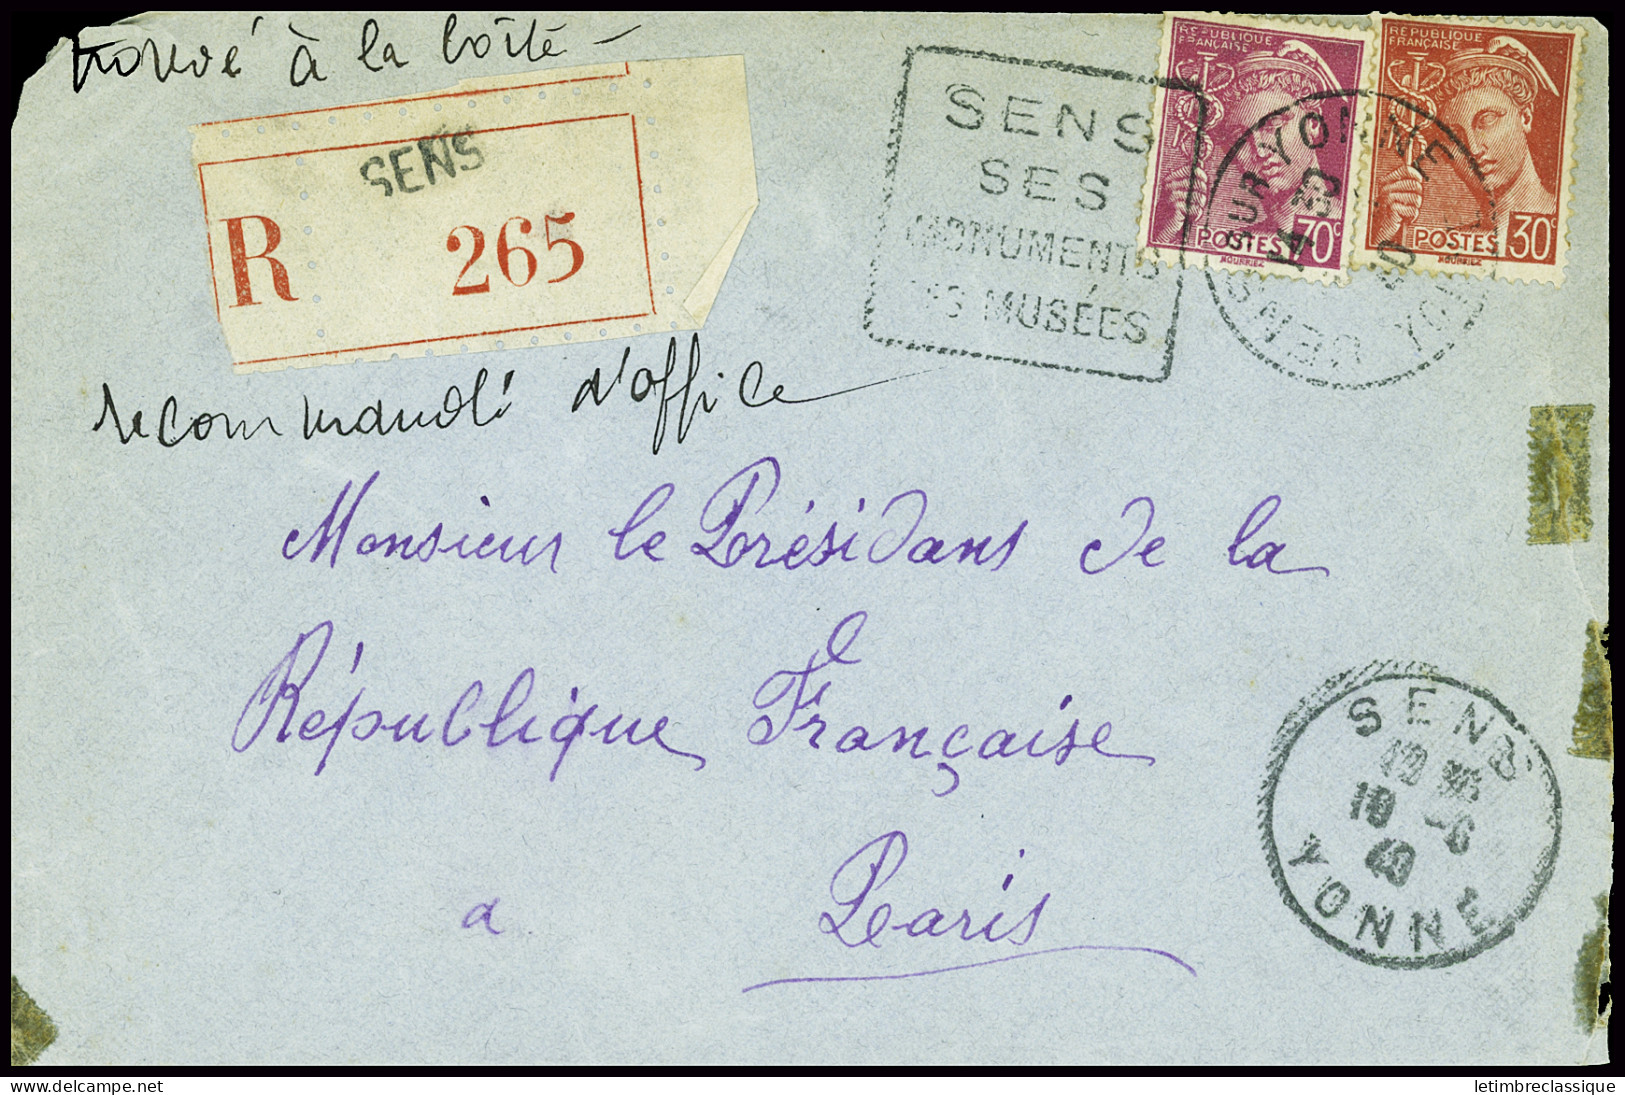 trouvé à la boîte -
SENS
R 265
recommandé d'office
SENS
SES
MONUMENTS
SES MUSÉES
REPUBLIQUE
FRANÇAISE
70c
POSTES
MOURRIEZ
REPUBLIQUE
FRANÇAISE
30c
POSTES
MOURRIEZ
SENS SUR YONNE
YONNE
Monsieur le Présidant de la
République Française
a Paris
SENS
10 -6
40
YONNE
delcampe.net
letimbreclassique